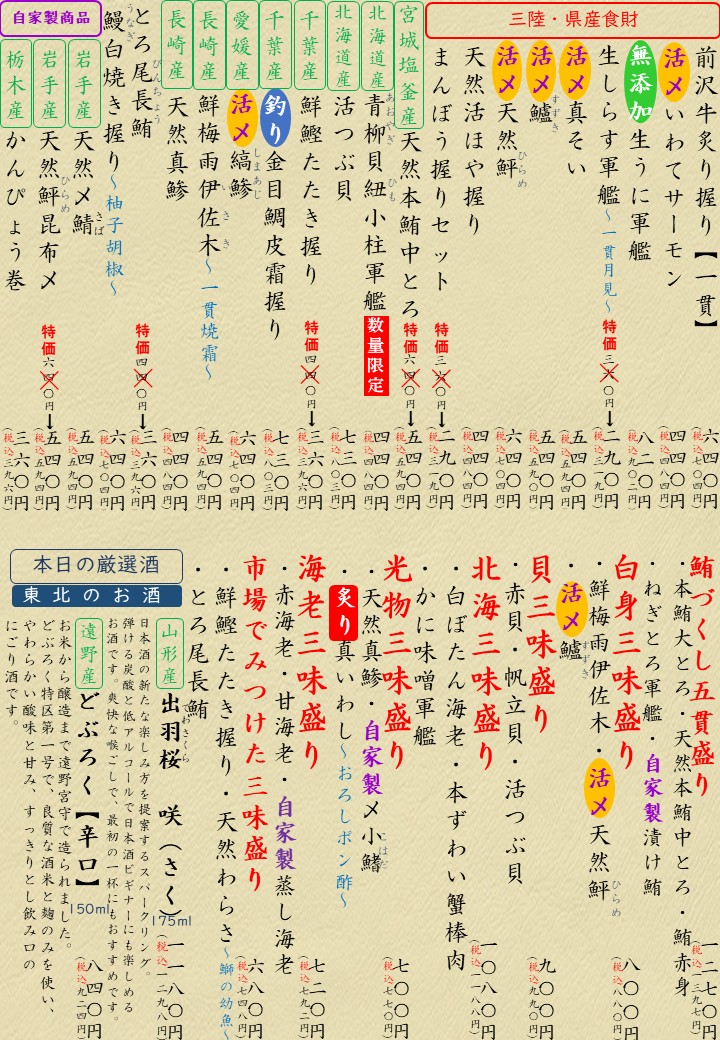 三陸・県産食財
前沢牛炙り握り【一貫】 六四〇円 (税込七〇四円)
活〆いわてサーモン 四四〇円 (税込四八四円)
無添加生うに軍艦 八二〇円 (税込九〇二円)
生しらす軍艦~一貫月見~ 特価三六〇円↓二九〇円 (税込三一九円)
活〆真そい 五四〇円 (税込五九四円)
活〆鱸 すずき 五四〇円 (税込五九四円)
活〆天然鮃 ひらめ 六四〇円 (税込七〇四円)
天然活ほや握り 四四〇円 (税込四八四円)
まんぼう握りセット 特価三六〇円↓二九〇円 (税込三一九円)
宮城塩釜産 天然本鮪中とろ 特価六四〇円↓五四〇円 (税込五九四円)
北海道産 青柳貝紐小柱軍艦 あおやぎ ひも 数量限定 四四〇円 (税込四八四円)
北海道産 活つぶ貝 七三〇円 (税込八〇三円)
千葉産 鮮鰹たたき握り 特価四四〇円↓三六〇円 (税込三九六円)
千葉産 釣り金目鯛皮霜握り 七三〇円 (税込八〇三円)
愛媛産 活〆縞鯵 しまあじ 六四〇円 (税込七〇四円)
長崎産 鮮梅雨伊佐木 いさき ~一貫焼霜~ 五四〇円 (税込五九四円)
長崎産 天然真鯵 四四〇円 (税込四八四円)
とろ尾長鮪 びんちょう 特価四四〇円↓三六〇円 (税込三九六円)
鰻白焼き握り うなぎ ~柚子胡椒~ 六四〇円 (税込七〇四円)
自家製商品
岩手産 天然〆鯖 さば 五四〇円 (税込五九四円)
岩手産 天然鮃昆布〆 ひらめ 特価六四〇円↓五四〇円 (税込五九四円)
栃木産 かんぴょう巻 三六〇円 (税込三九六円)
鮪づくし五貫盛り
・本鮪大とろ・天然本鮪中とろ・鮪赤身 一二七〇円 (税込一三九七円)
・ねぎとろ軍艦・自家製漬け鮪
白身三味盛り 八〇〇円 (税込八八〇円)
・鮮梅雨伊佐木・活〆天然鮃 ひらめ
・活〆鱸 すずき
貝三味盛り 九〇〇円 (税込九九〇円)
・赤貝・帆立貝・活つぶ貝
北海三味盛り 一〇八〇円 (税込一一八八円)
・白ぼたん海老・本ずわい蟹棒肉
・かに味噌軍艦
光物三味盛り 七〇〇円 (税込七七〇円)
・天然真鯵・自家製〆小鰭 こはだ
・炙り真いわし~おろしポン酢~
海老三味盛り 七二〇円 (税込七九二円)
・赤海老・甘海老・自家製蒸し海老
市場でみつけた三味盛り 六八〇円 (税込七四八円)
・鮮鰹たたき握り・天然わらさ~鰤の幼魚~
・とろ尾長鮪
本日の厳選酒
東北のお酒
山形産 出羽桜 でわさくら 咲(さく) 175ml 一一八〇円 (税込一二九八円)
日本酒の新たな楽しみ方を提案するスパークリング。
弾ける炭酸と低アルコールで日本酒ビギナーにも楽しめる
お酒です。爽快な喉ごしで、最初の一杯にもおすすめです。
遠野産 どぶろく【辛口】 150ml 八四〇円 (税込九二四円)
お米から醸造まで遠野宮守で造られました。
どぶろく特区第一号で、良質な酒米と麹のみを使い、
やわらかい酸味と甘み、すっきりとし飲み口の
にごり酒です。